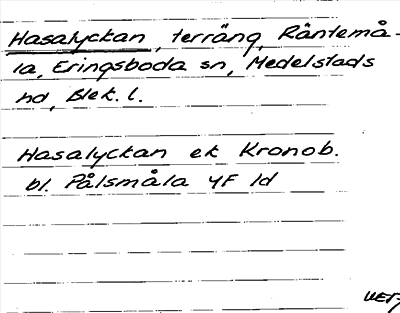 Hasalyckan, terräng, Räntemå-
la, Eringsboda sn, Medelstads
hd, Blek. l.
Hasalyckan ek Kronob.
bl. Pålsmåla 4F 1d